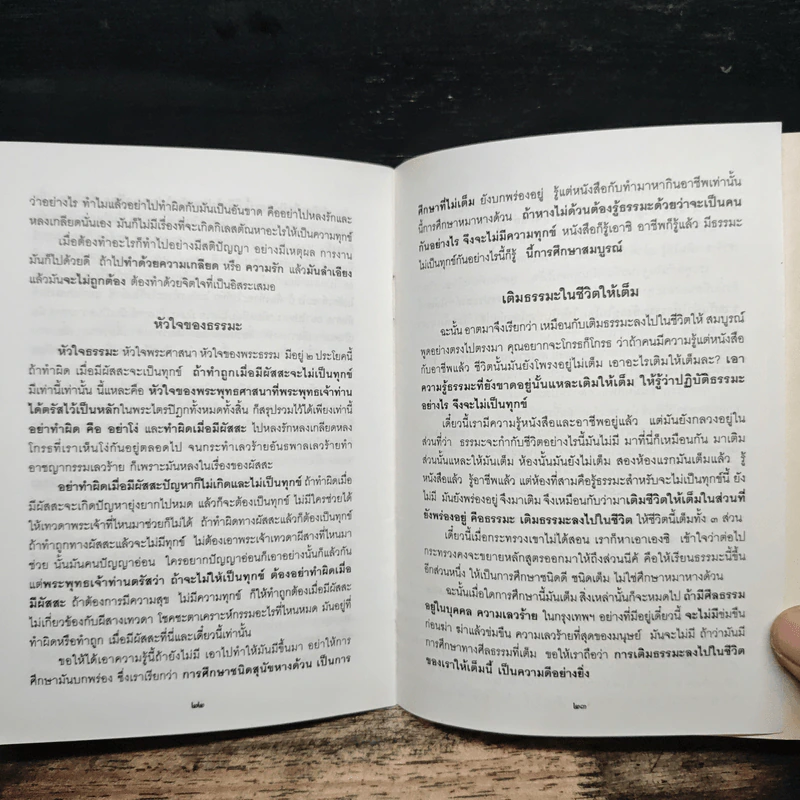 ว่าอย่างไร ทำไมแล้วอย่าไปทำผิดกับมันเป็นอันขาด คืออย่าไปหลงรักและ
หลงเกลียดนั่นเอง มันก็ไม่มีเรื่องที่จะเกิดกิเลสตัณหาอะไรให้เป็นความทุกข์
เมื่อต้องทำอะไรก็ทำไปอย่างมีสติปัญญา อย่างมีเหตุผล การงาน
มันก็ไปด้วยดี ถ้าไปทำด้วยความเกลียด หรือ ความรัก แล้วมันลำเอียง
แล้วมันจะไม่ถูกต้อง ต้องทำด้วยจิตใจที่เป็นอิสระเสมอ
หัวใจของธรรมะ
หัวใจธรรมะ หัวใจพระศาสนา หัวใจของพระธรรม มีอยู่ ๒ ประโยคนี้
ถ้าทำผิด เมื่อมีผัสสะจะเป็นทุกข์ ถ้าทำถูกเมื่อมีผัสสะจะไม่เป็นทุกข์
มีเท่านี้เท่านั้น นี่แหละคือ หัวใจของพระพุทธศาสนาที่พระพุทธเจ้าท่าน
ได้ตรัสไว้เป็นหลักในพระไตรปิฎกทั้งหมดทั้งสิ้น ก็สรุปรวมไว้ได้เพียงเท่านี้
อย่าทำผิด คือ อย่าโง่ และทำผิดเมื่อมีผัสสะ ไปหลงรักหลงเกลียดหลง
โกรธที่เราเห็นโง่กันอยู่ตลอดไป จนกระทำเลวร้ายอันธพาลเลวร้ายทำ
อาชญากรรมเลวร้าย ก็เพราะมันหลงในเรื่องของผัสสะ
อย่าทำผิดเมื่อมีผัสสะปัญหาก็ไม่เกิดและไม่เป็นทุกข์ ถ้าทำผิดเมื่อ
มีผัสสะจะเกิดปัญหายุ่งยากไปหมด แล้วก็จะต้องเป็นทุกข์ ไม่มีใครช่วยได้
ให้เทวดาพระเจ้าที่ไหนมาช่วยก็ไม่ได้ ถ้าทำผิดทางผัสสะแล้วก็ต้องเป็นทุกข์
ถ้าทำถูกทางผัสสะแล้วจะไม่มีทุกข์ ไม่ต้องเอาพระเจ้าเทวดาผีสางที่ไหนมา
ช่วย นั้นมันคนปัญญาอ่อน ใครอยากปัญญาอ่อนก็เอาอย่างนั้นก็แล้วกัน
แต่พระพุทธเจ้าท่านตรัสว่า ถ้าจะไม่ให้เป็นทุกข์ ต้องอย่าทำผิดเมื่อ
มีผัสสะ ถ้าต้องการมีความสุข ไม่มีความทุกข์ ก็ให้ทำถูกต้องเมื่อมีผัสสะ
ไม่เกี่ยวข้องกับผีสางเทวดา โชคชะตาเคราะห์กรรมอะไรที่ไหนหมด มันอยู่ที่
ทำผิดหรือทำถูก เมื่อมีผัสสะที่นี่และเดี๋ยวนี้เท่านั้น
ขอให้ได้เอาความรู้นี้ถ้ายังไม่มี เอาไปทำให้มันมีขึ้นมา อย่าให้การ
ศึกษามันบกพร่อง ซึ่งเราเรียกว่า การศึกษาชนิดสุนัขหางด้วน เป็นการ
๒๒
ศึกษาที่ไม่เต็ม ยังบกพร่องอยู่ รู้แต่หนังสือกับทำมาหากินอาชีพเท่านั้น
นี้การศึกษาหมาหางด้วน ถ้าหางไม่ด้วนต้องรู้ธรรมะด้วยว่าจะเป็นคน
กันอย่างไร จึงจะไม่มีความทุกข์ หนังสือก็รู้เอาซิ อาชีพก็รู้แล้ว มีธรรมะ
ไม่เป็นทุกข์กันอย่างไรนี้ก็รู้ นี้การศึกษาสมบูรณ์
เติมธรรมะในชีวิตให้เต็ม
ฉะนั้น อาตมาจึงเรียกว่า เหมือนกับเติมธรรมะลงไปในชีวิตให้ สมบูรณ์
พูดอย่างตรงไปตรงมา คุณอยากจะโกรธก็โกรธ ว่าถ้าคนมีความรู้แต่หนังสือ
กับอาชีพแล้ว ชีวิตนั้นมันยังโพรงอยู่ไม่เต็ม เอาอะไรเติมให้เต็มละ? เอา
ความรู้ธรรมะที่ยังขาดอยู่นั้นแหละเติมให้เต็ม ให้รู้ว่าปฏิบัติธรรมะ
อย่างไร จึงจะไม่เป็นทุกข์
เดี๋ยวนี้เรามีความรู้หนังสือและอาชีพอยู่แล้ว แต่มันยังกลวงอยู่ใน
ส่วนที่ว่า ธรรมะจะกำกับชีวิตอย่างไรนี้มันไม่มี มาที่นี่ก็เหมือนกัน มาเติม
ส่วนนั้นแหละให้มันเต็ม ห้องนั้นมันยังไม่เต็ม สองห้องแรกมันเต็มแล้ว รู้
หนังสือแล้ว รู้อาชีพแล้ว แต่ห้องที่สามคือรู้ธรรมะสำหรับจะไม่เป็นทุกข์นี้ ยัง
ไม่มี มันยังพร่องอยู่ จึงมาเติม จึงเหมือนกับว่ามาเติมชีวิตให้เต็มในส่วนที่
ยังพร่องอยู่ คือธรรมะ เติมธรรมะลงไปในชีวิต ให้ชีวิตนี้เต็มทั้ง ๓ ส่วน
เดี๋ยวนี้เมื่อกระทรวงเขาไม่ได้สอน เราก็หาเอาเองซิ เข้าใจว่าต่อไป
กระทรวงคงจะขยายหลักสูตรออกมาให้ถึงส่วนนี้ค์ คือให้เรียนธรรมะนี้ขึ้น
อีกส่วนหนึ่ง ให้เป็นการศึกษาชนิดดี ชนิดเต็ม ไม่ใช่ศึกษาหมาหางด้วน
ฉะนั้นเมื่อใดการศึกษานี้มันเต็ม สิ่งเหล่านั้นก็จะหมดไป ถ้ามีศีลธรรม
อยู่ในบุคคล ความเลวร้าย ในกรุงเทพฯ อย่างที่มีอยู่เดี๋ยวนี้ จะไม่มีข่มขืน
ก่อนฆ่า ฆ่าแล้วข่มขืน ความเลวร้ายที่สุดของมนุษย์ มันจะไม่มี ถ้าว่ามันมี
การศึกษาทางศีลธรรมที่เต็ม ขอให้เราถือว่า การเติมธรรมะลงไปในชีวิต
ของเราให้เต็มนี้ เป็นความดีอย่างยิ่ง
๒๓